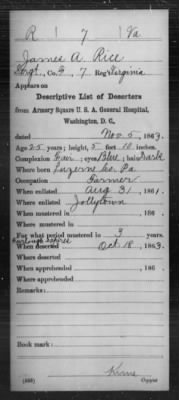 R 7 Va
James A. Rice
Sergt, Co. F, 7 Reg't Virginia
Appears on
Descriptive List of Deserters
from Armory Square U. S. A. General Hospital,
Washington, D. C.,
dated Nov. 5, 1863.
Age 25 years; height, 5 feet 10 inches.
Complexion Fair; eyes Blue; hair Dark
Where born Luzerne Co. Pa
Occupation Farmer
When enlisted Aug 31, 1861.
Where enlisted Jollytown
When mustered in , 186 .
Where mustered in
For what period mustered in 3 years.
Furlough expired
When deserted Oct 18, 1863.
Where deserted
When apprehended , 186 .
Where apprehended
Remarks:
Book mark:
(339) Copyist